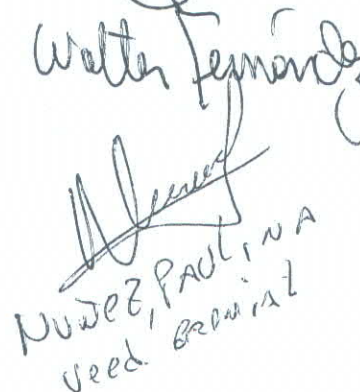 Walter Fernánde
NUÑEZ, PAULINA
Veed. Gremial